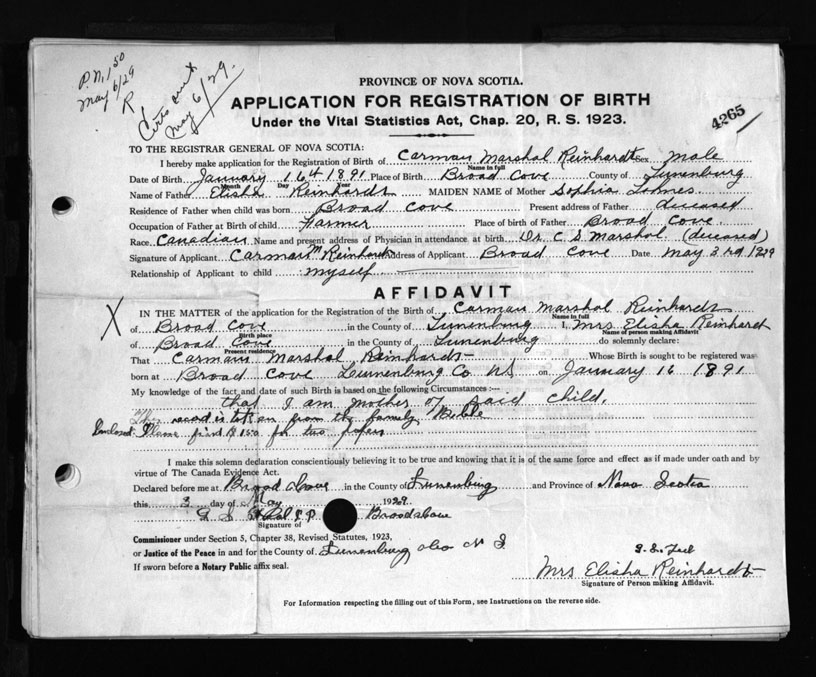 P.N. 1 50
May 6/29
R
May 6/29.
PROVINCE OF NOVA SCOTIA.
APPLICATION FOR REGISTRATION OF BIRTH
Under the Vital Statistics Act, Chap. 20, R. S. 1923.
4265
TO THE REGISTRAR GENERAL OF NOVA SCOTIA:
I hereby make application for the Registration of Birth of Carman Marshal Reinhardt Sex male
Name in full
Date of Birth January 16th 1891 Place of Birth Broad Cove County of Lunenburg
Month Day Year
Name of Father Elisha Reinhardt MAIDEN NAME of Mother Sophia Lohnes
Residence of Father when child was born Broad Cove Present address of Father deceased
Occupation of Father at Birth of child Farmer Place of birth of Father Broad Cove
Race Canadian Name and present address of Physician in attendance at birth Dr. C S Marshal (deceased)
Signature of Applicant Carman M Reinhardt Address of Applicant Broad Cove Date May 3rd 1929
Relationship of Applicant to child myself
AFFIDAVIT
X
IN THE MATTER of the application for the Registration of the Birth of Carman Marshal Reinhardt
Name in full
of Broad Cove in the County of Lunenburg I, Mrs Elisha Reinhardt
Birth place Name of person making Affidavit
of Broad Cove in the County of Lunenburg do solemnly declare:
Present residence
That Carman Marshal Reinhardt Whose Birth is sought to be registered was
born at Broad Cove Lunenburg Co NS on January 16 1891
My knowledge of the fact and date of such Birth is based on the following Circumstances :—
that I am mother of said child.
This record is taken from the family Bible
Enclosed Please find $1.50 for two papers
I make this solemn declaration conscientiously believing it to be true and knowing that it is of the same force and effect as if made under oath and by
virtue of The Canada Evidence Act.
Declared before me at Broad Cove in the County of Lunenburg and Province of Nova Scotia
this 3 day of May 1929.
J P Broad Cove
Signature of
Commissioner under Section 5, Chapter 38, Revised Statutes, 1923,
or Justice of the Peace in and for the County of Lunenburg N S
If sworn before a Notary Public affix seal.
Mrs Elisha Reinhardt
Signature of Person making Affidavit.
For Information respecting the filling out of this Form, see Instructions on the reverse side.